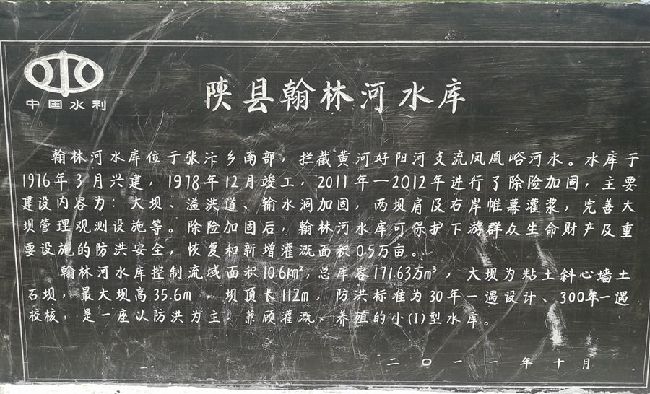 中国水利
陕县翰林河水库
翰林河水库位于张汴乡南部，拦截黄河好阳河支流凤凰峪河水。水库于
1976年3月兴建，1978年12月竣工，2011年—2012年进行了除险加固，主要
建设内容为：大坝、溢洪道、输水洞加固，两坝肩及右岸帷幕灌浆，完善大
坝管理观测设施等。除险加固后，翰林河水库可保护下游群众生命财产及重
要设施的防洪安全，恢复和新增灌溉面积0.5万亩。
翰林河水库控制流域面积10.6km²，总库容171.63万m³，大坝为粘土斜心墙土
石坝，最大坝高35.6m，坝顶长112m，防洪标准为30年一遇设计、300年一遇
校核，是一座以防洪为主，兼顾灌溉、养殖的小(1)型水库。
二〇一 年十月